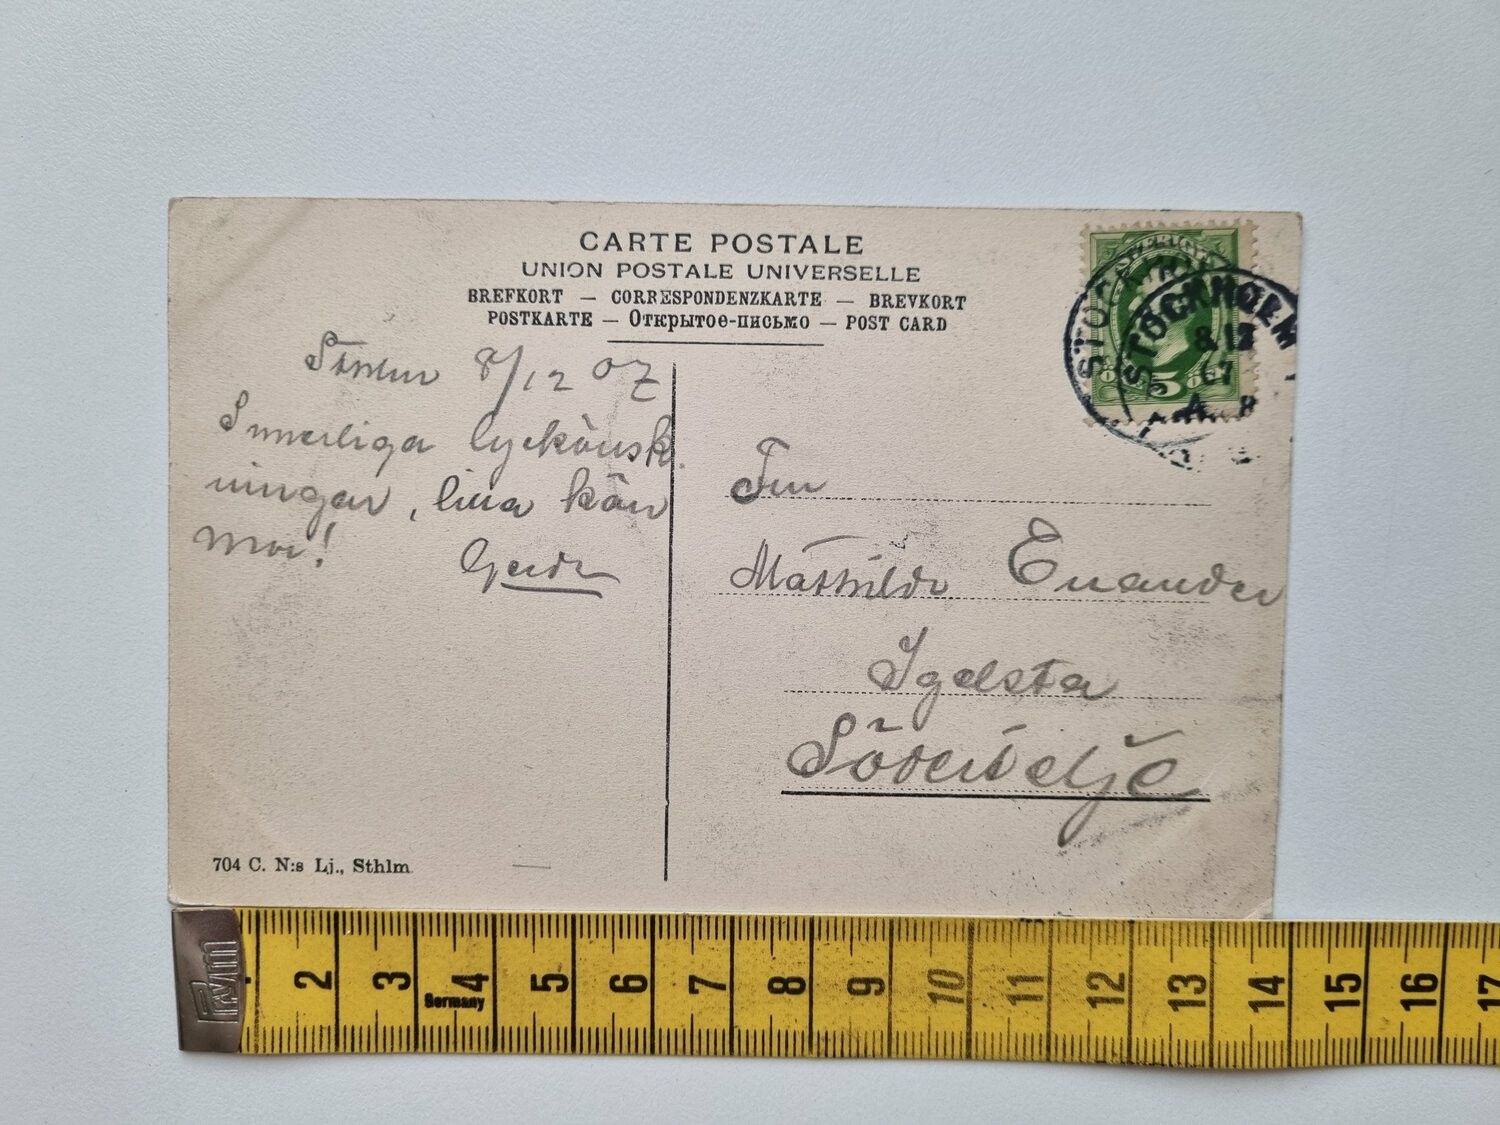 CARTE POSTALE
UNION POSTALE UNIVERSELLE
BREFKORT — CORRESPONDENZKARTE — BREVKORT
POSTKARTE — Открытое-письмо — POST CARD
Sthlm 8/12 07
Innerliga lyckönsk
ningar, lilla kän
mor!
Gerda
704 C. N:s Lj., Sthlm
STOCKHOLM
STOCKHOLM
8 12
07
5
Fru
Mathilda Enander
Igelsta
Södertelje
Prym
Germany
2 3 4 5 6 7 8 9 10 11 12 13 14 15 16 17